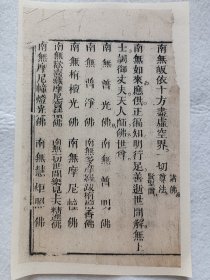 南無皈依十方盡虛空界一切諸佛尊法賢聖僧
南無如來應供正徧知明行足善逝世間解無上
士調御丈夫天人師佛世尊
南無普光佛　南無普明佛
南無普淨佛　南無多摩羅跋栴檀香佛
南無栴檀光佛　南無摩尼幢佛
南無歡喜藏摩尼寶積佛　南無一切世間樂見上大精進佛
南無摩尼幢燈光佛　南無慧炬照佛